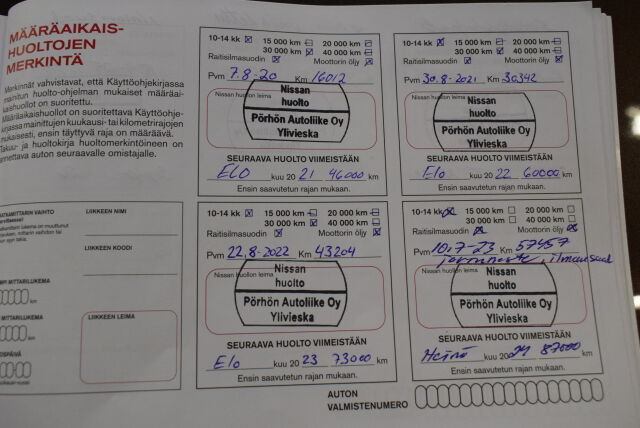 MÄÄRÄAIKAIS-
HUOLTOJEN
MERKINTÄ
Merkinnät vahvistavat, että Käyttöohjekirjassa
mainitun huolto-ohjelman mukaiset määräai-
kaishuollot on suoritettu.
Määräaikaishuollot on suoritettava Käyttöohje-
kirjassa mainittujen kuukausi- tai kilometrirajojen
mukaisesti, ensin täyttyvä raja on määräävä.
Takuu- ja huoltokirja huoltomerkintöineen on
annettava auton seuraavalle omistajalle.
10-14 kk 15 000 km 20 000 km
30 000 km 40 000 km
Raitisilmasuodin Moottorin öljy
Pvm 7.8-20 Km 16012
Nissan huollon leima
Nissan
huolto
Pörhön Autoliike Oy
Ylivieska
SEURAAVA HUOLTO VIIMEISTÄÄN
ELO kuu 20 21 46000 km
Ensin saavutetun rajan mukaan.
10-14 kk 15 000 km 20 000 km
30 000 km 40 000 km
Raitisilmasuodin Moottorin öljy
Pvm 30.8-2021 Km 30342
Nissan huollon leima
Nissan
huolto
Pörhön Autoliike Oy
Ylivieska
SEURAAVA HUOLTO VIIMEISTÄÄN
Elo kuu 20 22 60000 km
Ensin saavutetun rajan mukaan.
10-14 kk 15 000 km 20 000 km
30 000 km 40 000 km
Raitisilmasuodin Moottorin öljy
Pvm 22.8-2022 Km 43204
Nissan huollon leima
Nissan
huolto
Pörhön Autoliike Oy
Ylivieska
SEURAAVA HUOLTO VIIMEISTÄÄN
Elo kuu 20 23 73000 km
Ensin saavutetun rajan mukaan.
10-14 kk 15 000 km 20 000 km
30 000 km 40 000 km
Raitisilmasuodin Moottorin öljy
Pvm 10.7-23 Km 57457
Nissan huollon leima
Nissan
huolto
Pörhön Autoliike Oy
Ylivieska
SEURAAVA HUOLTO VIIMEISTÄÄN
Heinä kuu 20 24 87000 km
Ensin saavutetun rajan mukaan.
MATKAMITTARIN VAIHTO
LIIKKEEN NIMI
LIIKKEEN KOODI
MITTARILUKEMA
km
MITTARILUKEMA
km
LIIKKEEN LEIMA
AUTON
VALMISTENUMERO